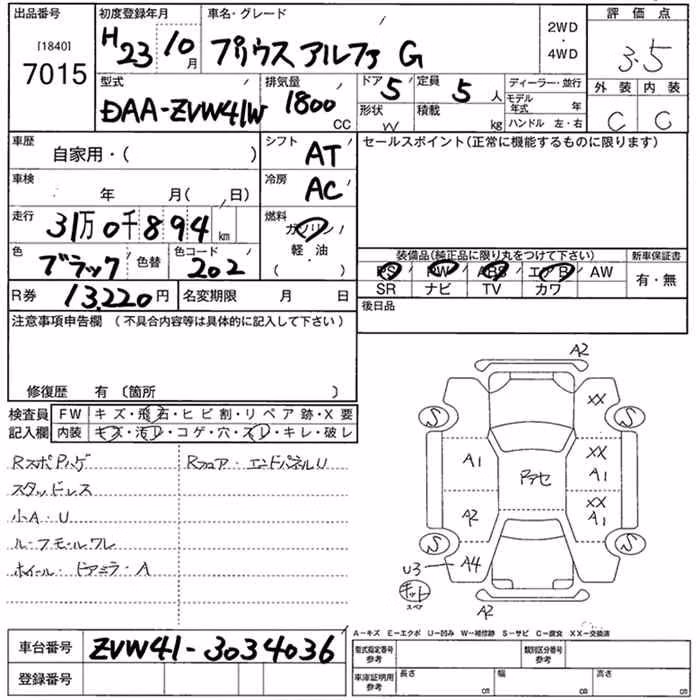 出品番号 初度登録年月 車名・グレード 評価点
[1840]
7015 H23 10月 プリウスアルファ G 2WD・4WD 3.5
型式 排気量 ドア 定員 ディーラー・並行 外装 内装
DAA-ZVW41W 1800CC 5 5人 モデル年式 年 C C
形状 W 積載 kg ハンドル 左・右
車歴 シフト セールスポイント(正常に機能するものに限ります)
自家用・( ) AT
車検 冷房
年 月( 日) AC
走行 燃料
31万0千894km ガソリン
色 色コード 軽・油 装備品(純正品に限り丸をつけて下さい) 新車保証書
ブラック 色替 202 ( ) PS PW ABS エアB AW 有・無
SR ナビ TV カワ
R券 13,220円 名変期限 月 日 後日品
注意事項申告欄(不具合内容等は具体的に記入して下さい)
修復歴 有(箇所 )
検査員 FW キズ・飛石・ヒビ割・リペア跡・X要
記入欄 内装 キズ・汚レ・コゲ・穴・スレ・キレ・破レ
RスポPハゲ Rフロア・エンドパネルU
スタッドレス
小A・U
ルーフモールワレ
ホイール・ドアミラーA
A2
XX
S S
A1 XX A1
Pアセ
A2 XX A1
S S
U3 A4
キット
スペア
A2
A-キズ E-エクボ U-凹み W-補修跡 S-サビ C-腐食 XX-交換済
車台番号 ZVW41-3034036 型式指定番号 参考 類別区分番号 参考
登録番号 車庫証明用 参考 長さ cm 幅 cm 高さ cm